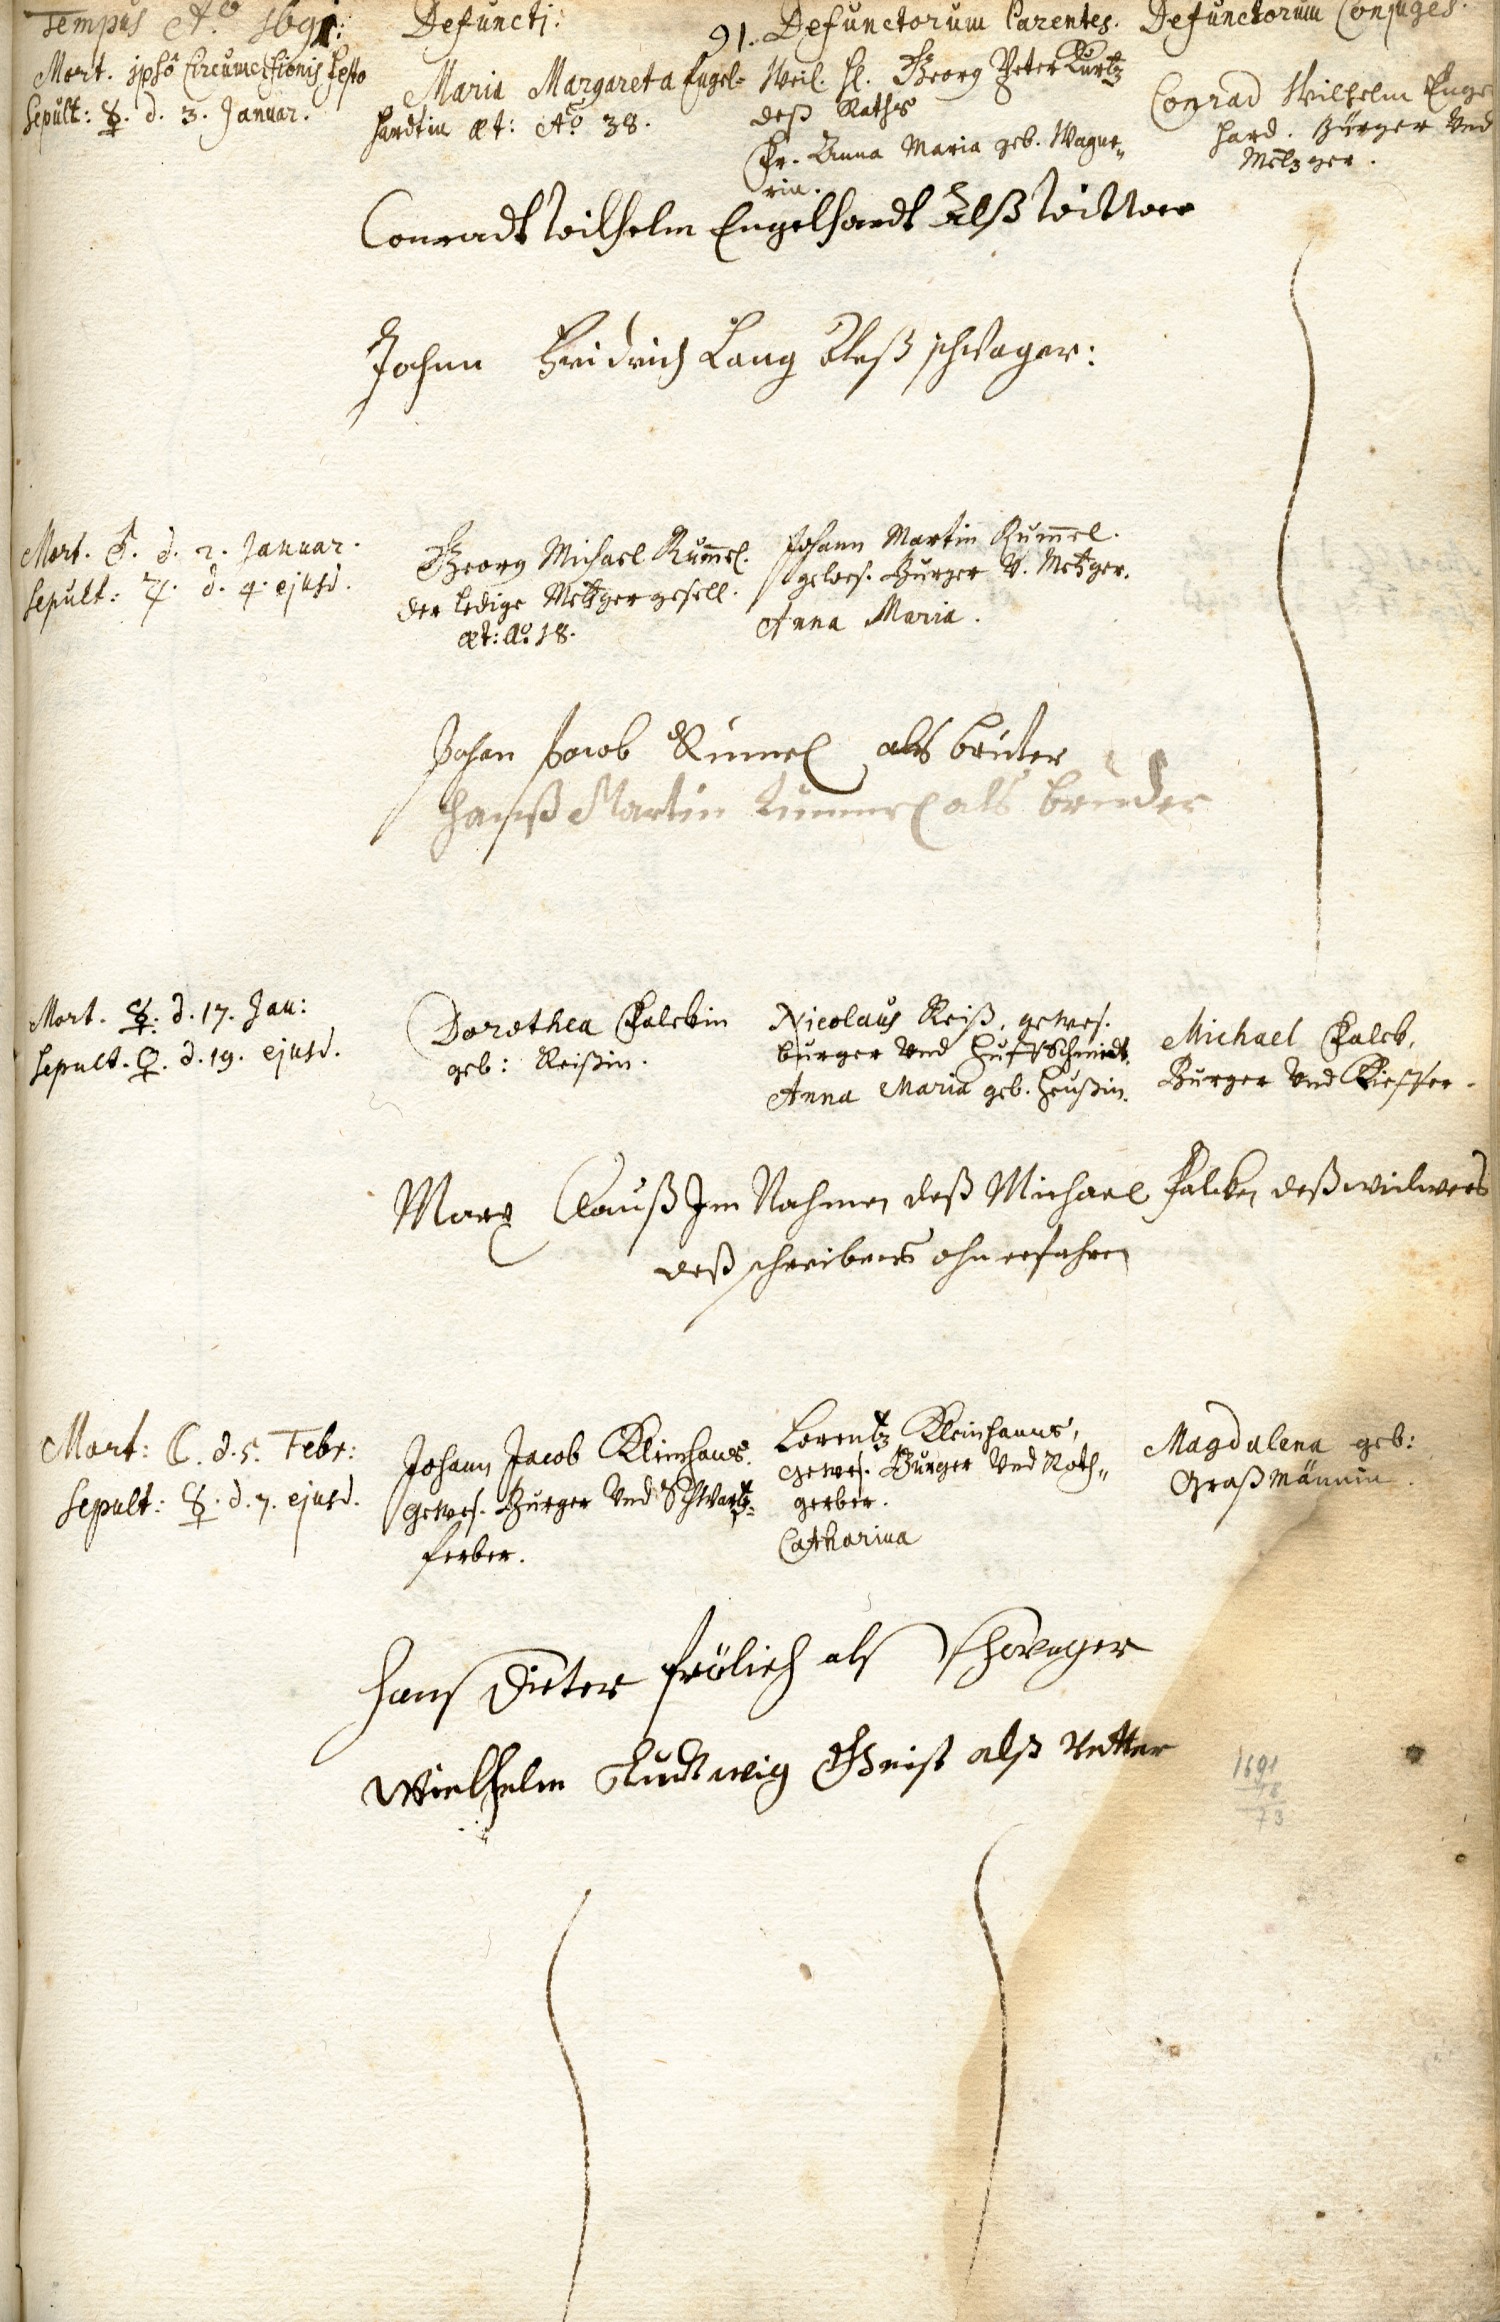 Tempus Aõ 1691:
Defuncti:
91. Defunctorum Parentes.
Defunctorum Conjuges.
Mort. ipsô Circumcisionis festo
Sepult: ☿. d. 3. Januar.
Maria Margareta Engel=
hardtin æt: Aõ 38.
Weil. H. Georg Peter Kurtz
deß Raths
Fr. Anna Maria geb. Wagne„
rin.
Conrad Wilhelm Enge
hard. Bürger Und
Metzger.
Conradt Wilhelm Engelhardt Alß Wittwer
Johan Fridrich Lang Alß schwager:
Mort. ♂. d. 2. Januar.
Sepult: ♃. d. 4. ejusd.
Georg Michael Rum̃el.
der ledige Metzger gesell.
æt: Aõ. 18.
Johann Martin Rum̃el.
gewes. Burger V. Metzger.
Anna Maria.
Johan Jacob Rumel als bruter
Hanß Martin Rummel als bruder
Mort. ☿. d. 17. Jan:
Sepult. ♀. d. 19. ejusd.
Dorothea Falckin
geb: Reißin.
Nicolaus Reiß, gewes.
burger Und Huffschmidt.
Anna Maria geb. Heußin.
Michael Falck,
Burger Und Kieffer.
Marx Clauß Im Nahmen deß Michael Falcken deß wittwers
deß schreibens ohn erfahren
Mort: ☾. d. 5. Febr:
Sepult: ☿. d. 7. ejusd.
Johann Jacob Kleinhans.
gewes. Burger Und Schwartz=
ferber.
Lorentz Kleinhanns,
gewes. Burger Und Roth„
gerber.
Catharina
Magdalena geb:
Graßmännin.
Hans Dieter Frölich als Schwager
Wielhelm Ludtwig Geist alß Vetter
1691
18
73